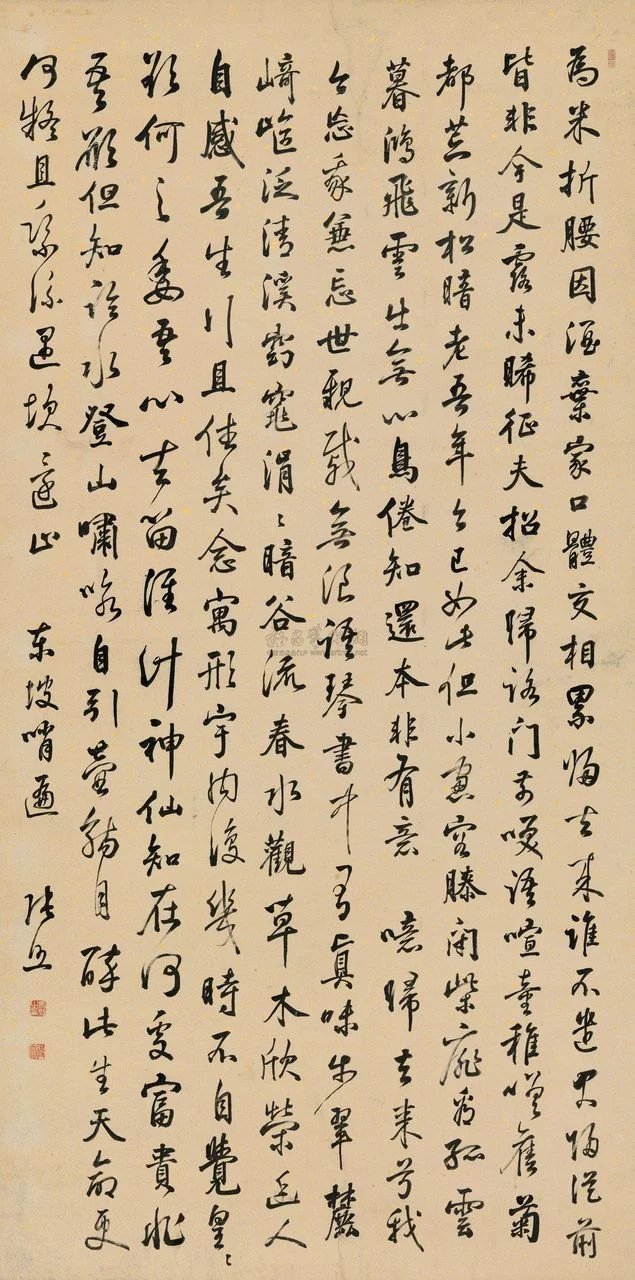 為米折腰因酒棄家口體交相累歸去來誰不遣君歸從前
皆非今是露未晞征夫指余歸路門前咲語喧童稚嗟舊菊
都荒新松暗老吾年今已如此但小窗容膝閉柴扉看孤雲
暮鴻飛雲出無心鳥倦知還本非有意 噫歸去來兮我
今忘我兼忘世親戚無浪語琴書中有真味步翠麓
崎嶇泛清溪窈窕涓〻暗谷流春水觀草木欣榮幽人
自感吾生行且休矣念寓形宇內復幾時不自覺皇〻
欲何之委吾心去留誰計神仙知在何處富貴非
吾願但知臨水登山嘯詠自引壺觴自醉此生天命更
何疑且乘流遇坎還止 東坡哨遍 張照